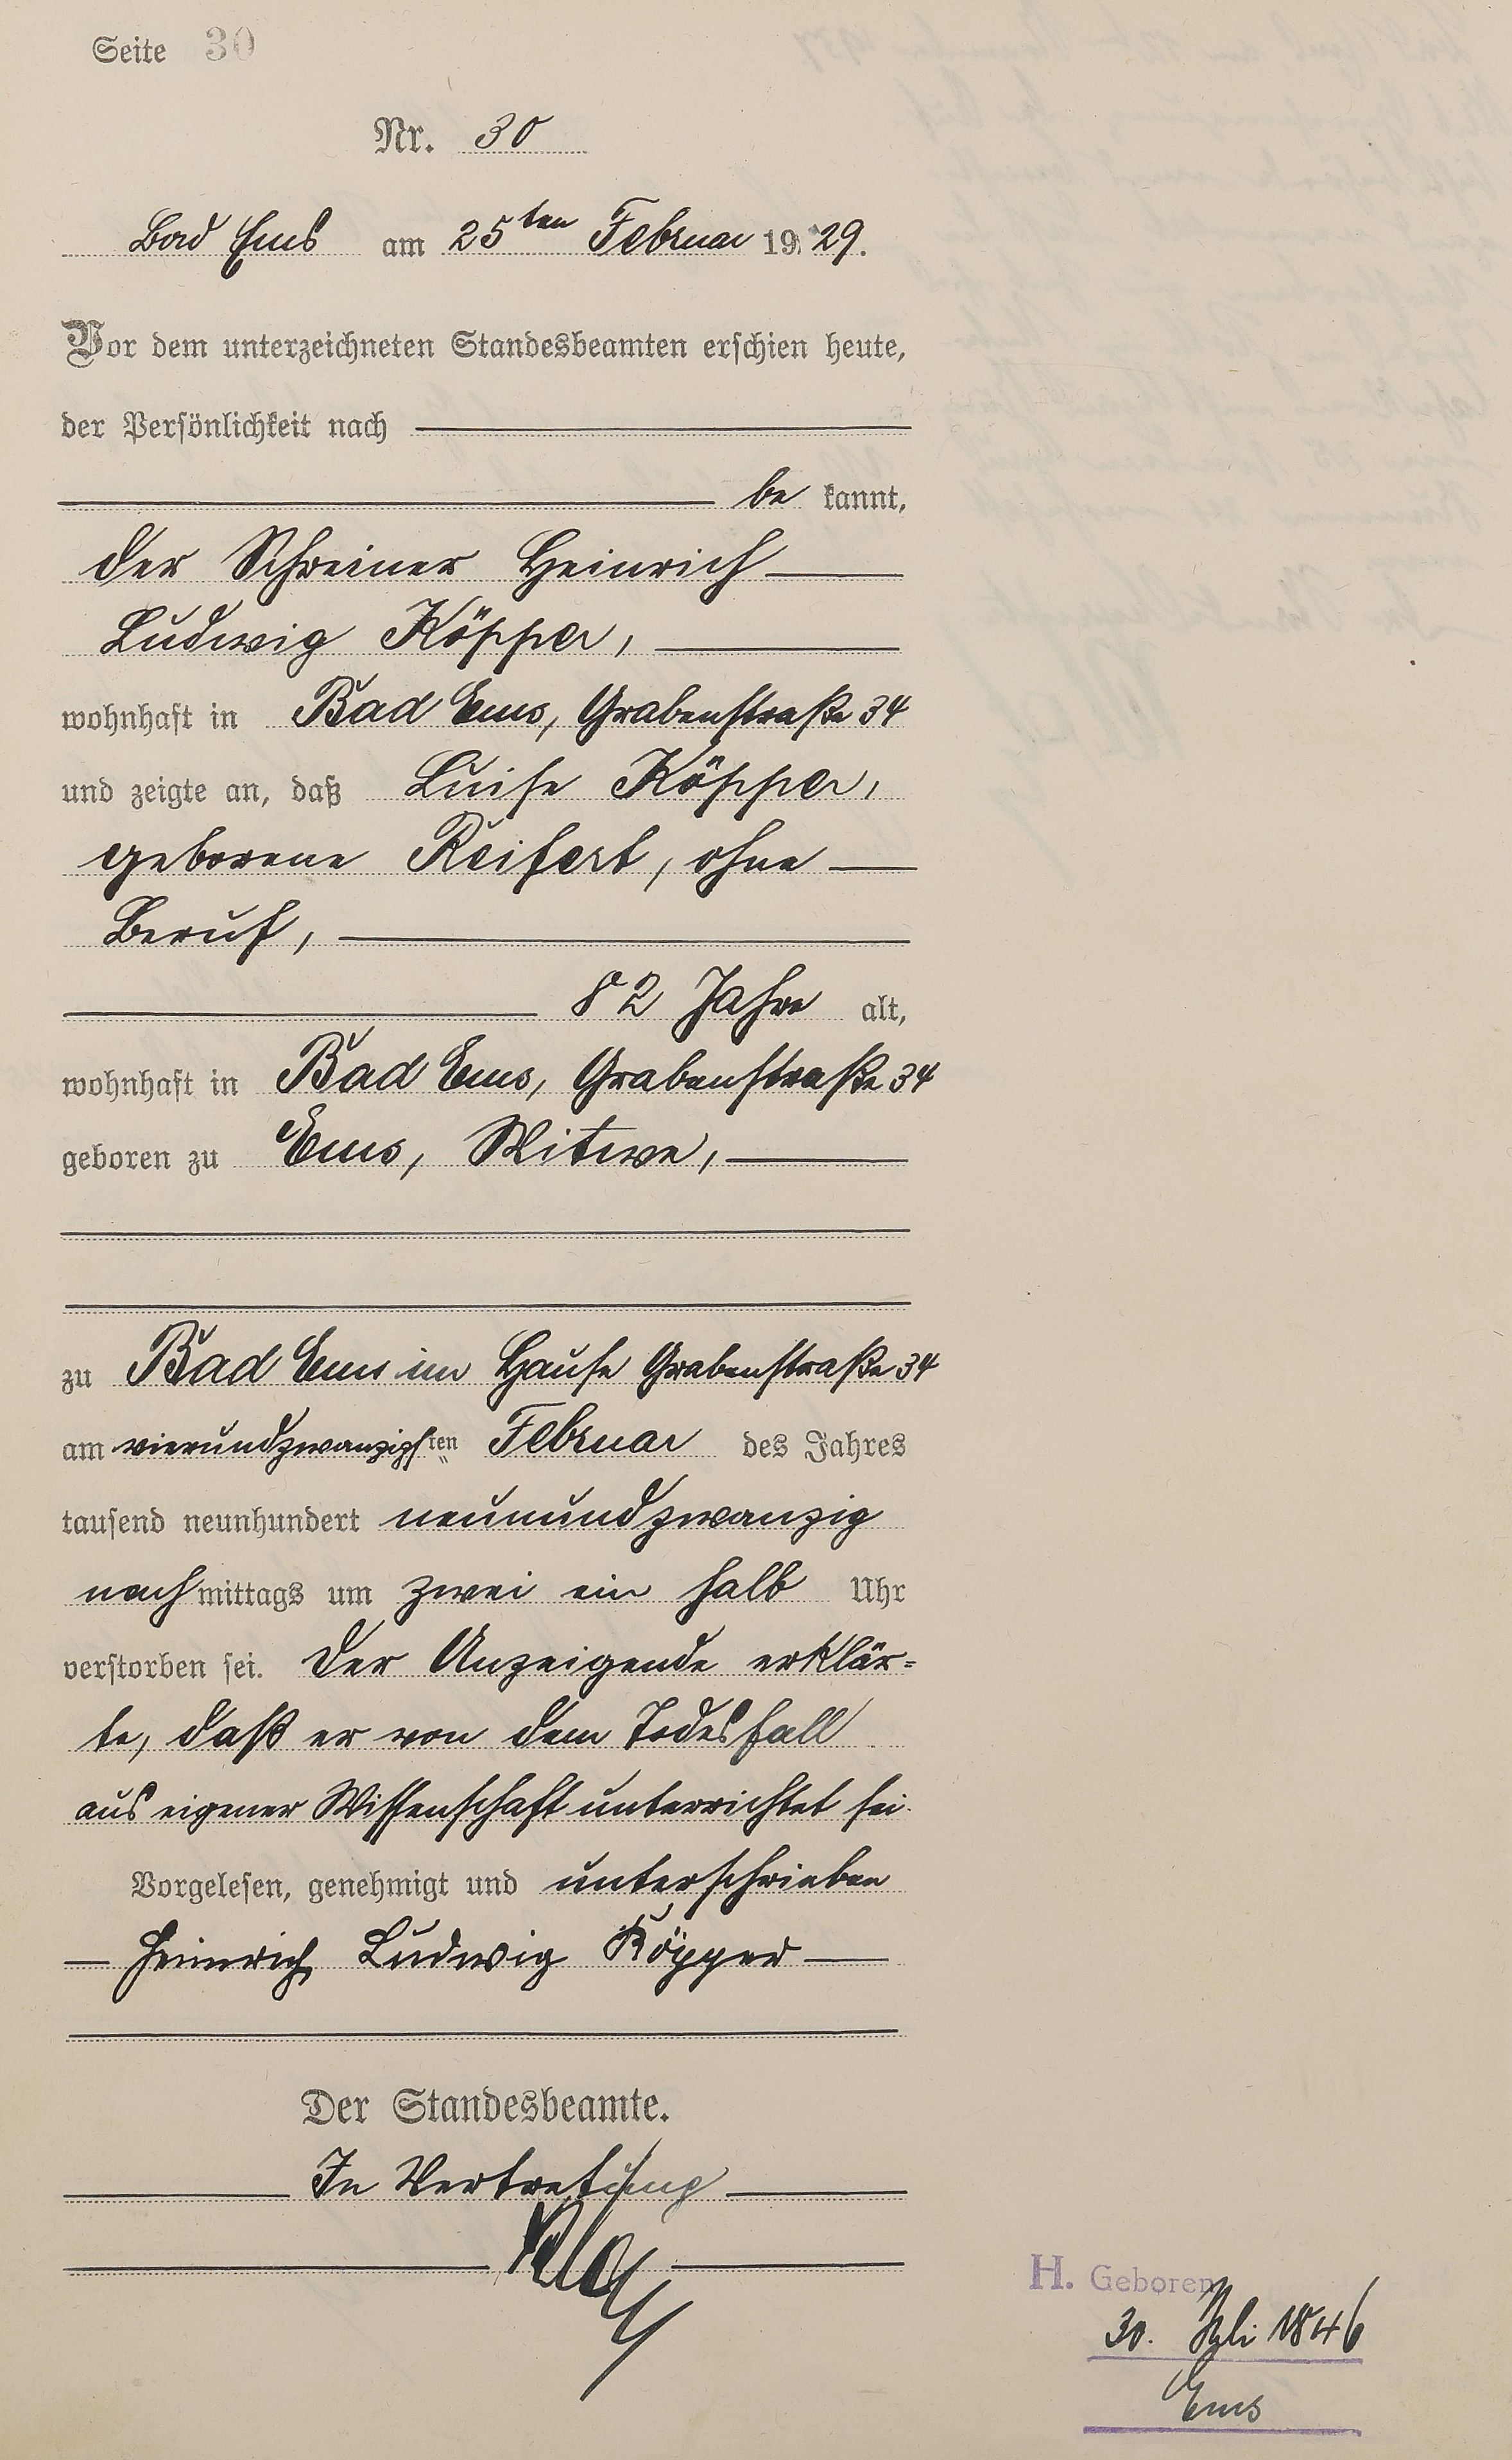 Seite 30
Nr. 30
Bad Ems am 25ten Februar 1929.
Vor dem unterzeichneten Standesbeamten erschien heute,
der Persönlichkeit nach
be kannt,
der Schreiner Heinrich
Ludwig Köpper,
wohnhaft in Bad Ems, Grabenstraße 34
und zeigte an, daß Luise Köpper,
geborene Reifert, ohne
Beruf,
82 Jahre alt,
wohnhaft in Bad Ems, Grabenstraße 34
geboren zu Ems, Witwe,
zu Bad Ems im Hause Grabenstraße 34
am vierundzwanzigsten Februar des Jahres
tausend neunhundert neunundzwanzig
nachmittags um zwei ein halb Uhr
verstorben sei. Der Anzeigende erklär=
te, daß er von dem Todesfall
aus eigener Wissenschaft unterrichtet sei.
Vorgelesen, genehmigt und unterschrieben
Heinrich Ludwig Köpper
Der Standesbeamte.
In Vertretung
H. Geboren
30. Juli 1846
Ems